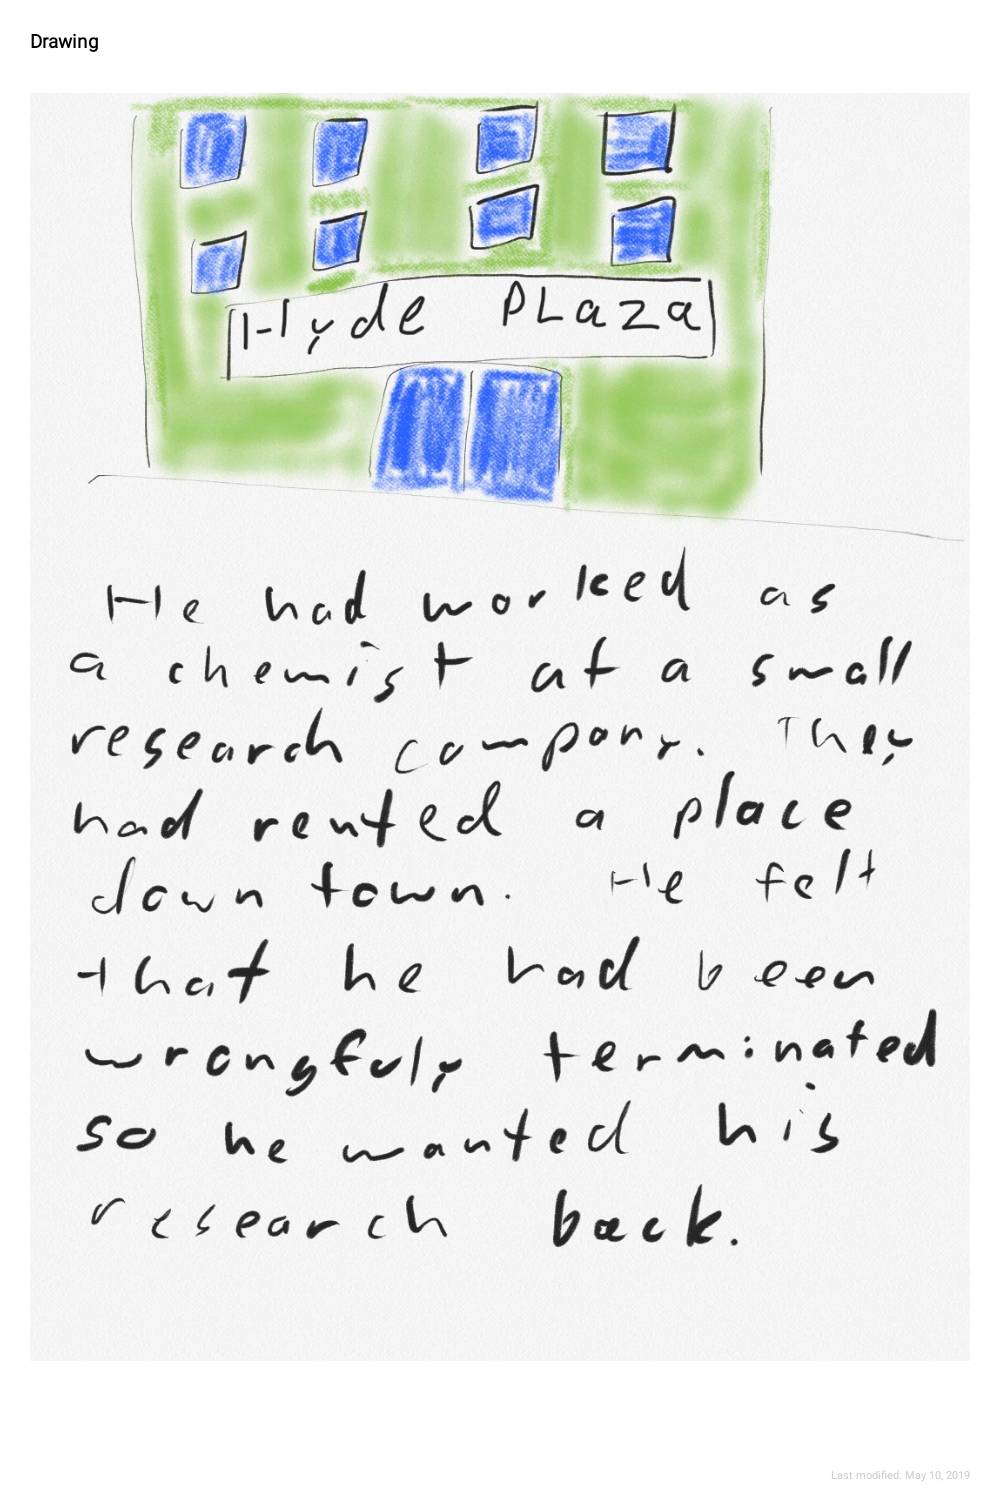 Drawing
Hyde PLaza
He had worked as
a chemist at a small
research company. They
had rented a place
down town. He felt
that he had been
wrongfuly terminated
so he wanted his
research back.
Last modified: May 10, 2019